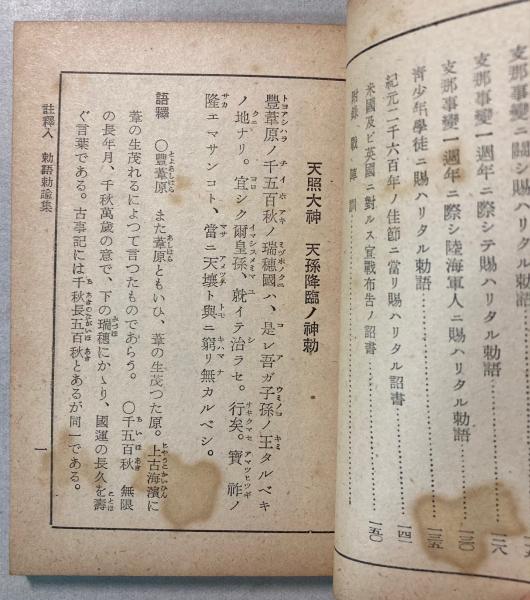 關シ賜ハリタル勅語
支那事變一週年ニ際シテ賜ハリタル勅語……一二八
支那事變一週年ニ際シ陸海軍人ニ賜ハリタル勅語……一三〇
靑少年學徒ニ賜ハリタル勅語……一三五
紀元二千六百年ノ佳節ニ當リ賜ハリタル詔書……一四一
米國及ビ英國ニ對スル宣戰布告ノ詔書……一五〇
附錄 戰陣訓
天照大神 天孫降臨ノ神勅
豐葦原ノ千五百秋ノ瑞穗國ハ、是レ吾ガ子孫ノ王タルベキ
ノ地ナリ。宜シク爾皇孫、就イテ治ラセ。行矣。寶祚ノ
隆エマサンコト、當ニ天壤ト與ニ窮リ無カルベシ。
語釋 〇豐葦原 また葦原ともいひ、葦の生茂つた原。上古海濱に
葦の生茂れるによつて言つたものであらう。 〇千五百秋 無限
の長年月、千秋萬歲の意で、下の瑞穗にかゝり、國運の長久を壽
ぐ言葉である。古事記には千秋長五百秋とあるが同一である。
註釋入 勅語勅諭集
一